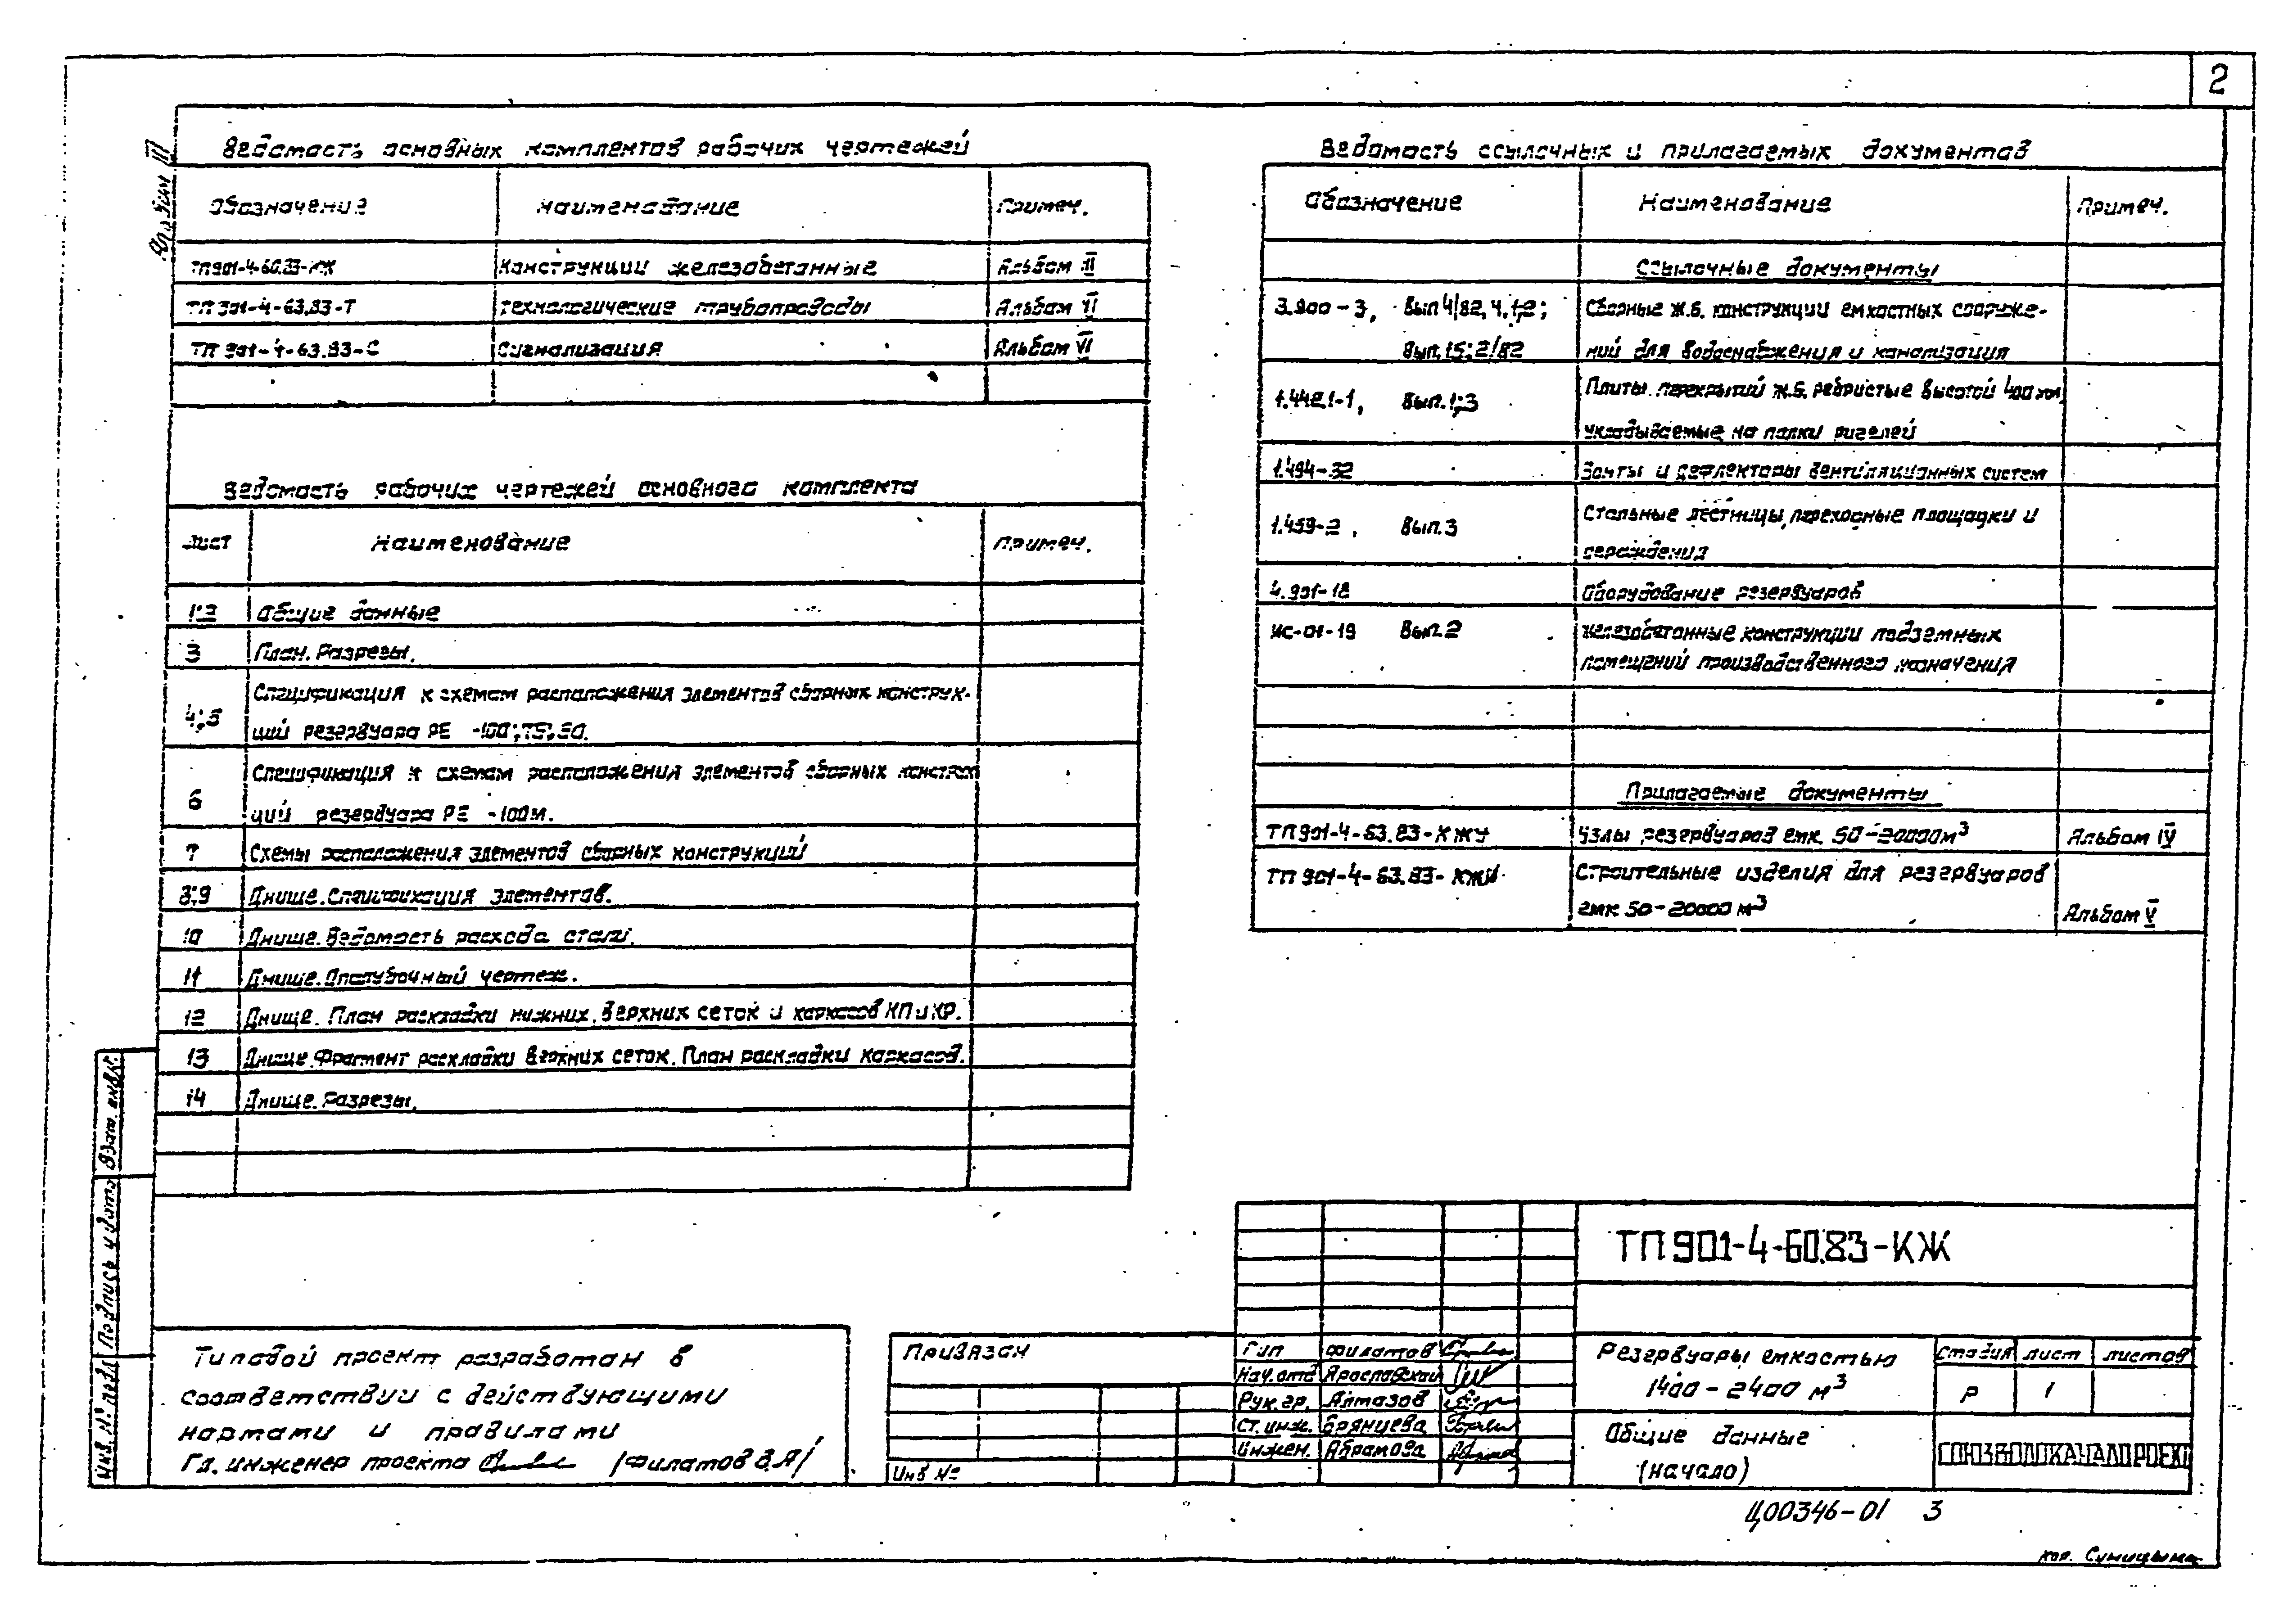 2
Альбом III
Ведомость основных комплектов рабочих чертежей
Обозначение Наименование Примеч.
ТП901-4-60.83-КЖ Конструкции железобетонные Альбом III
ТП 901-4-63.83-Т Технологические трубопроводы Альбом II
ТП 901-4-63.83-С Сигнализация Альбом VI
Ведомость рабочих чертежей основного комплекта
Лист Наименование Примеч.
1;2 Общие данные
3 План. Разрезы.
4;5 Спецификация к схемам расположения элементов сборных конструк-
ций резервуара РЕ -100;75;50.
6 Спецификация к схемам расположения элементов сборных конструк
ций резервуара РЕ -100м.
7 Схемы расположения элементов сборных конструкций
8;9 Днище. Спецификация элементов.
10 Днище. Ведомость расхода стали.
11 Днище. Опалубочный чертеж.
12 Днище. План раскладки нижних, верхних сеток и каркасов КП и КР.
13 Днище. Фрагмент раскладки верхних сеток. План раскладки каркасов.
14 Днище. Разрезы.
Ведомость ссылочных и прилагаемых документов
Обозначение Наименование Примеч.
Ссылочные документы
3.900-3, Вып 4/82, ч. 1,2; Сборные ж.б. конструкции емкостных сооруже-
Вып. 15; 2/82 ний для водоснабжения и канализация
1.442.1-1, Вып. 1;3 Плиты перекрытий ж.б. ребристые высотой 400 мм,
укладываемые на полки ригелей
1.494-32 Зонты и дефлекторы вентиляционных систем
1.459-2, Вып. 3 Стальные лестницы, переходные площадки и
ограждения
4.901-18 Оборудование резервуаров
ИС-01-19 Вып. 2 Железобетонные конструкции подземных
помещений производственного назначения
Прилагаемые документы
ТП901-4-63.83-КЖУ Узлы резервуаров емк. 50-20000м³ Альбом IV
ТП 901-4-63.83-КЖИ Строительные изделия для резервуаров
емк 50-20000 м³ Альбом V
Взам. инв.№
Подпись и дата
Инв. № подл
Типовой проект разработан в
соответствии с действующими
нормами и правилами
Гл. инженер проекта /Филатов В.А/
Привязан
Инв №
ТП901-4-60.83-КЖ
Гип Филатов
Нач.отд Ярославский
Рук. гр. Алмазов
Ст. инж. Брянцева
Инжен. Абрамова
Резервуары емкостью
1400-2400 м³
Стадия Лист Листов
Р 1
Общие данные
(начало)
СОЮЗВОДОКАНАЛПРОЕКТ
Ц00346-01 3
кор. Синицына